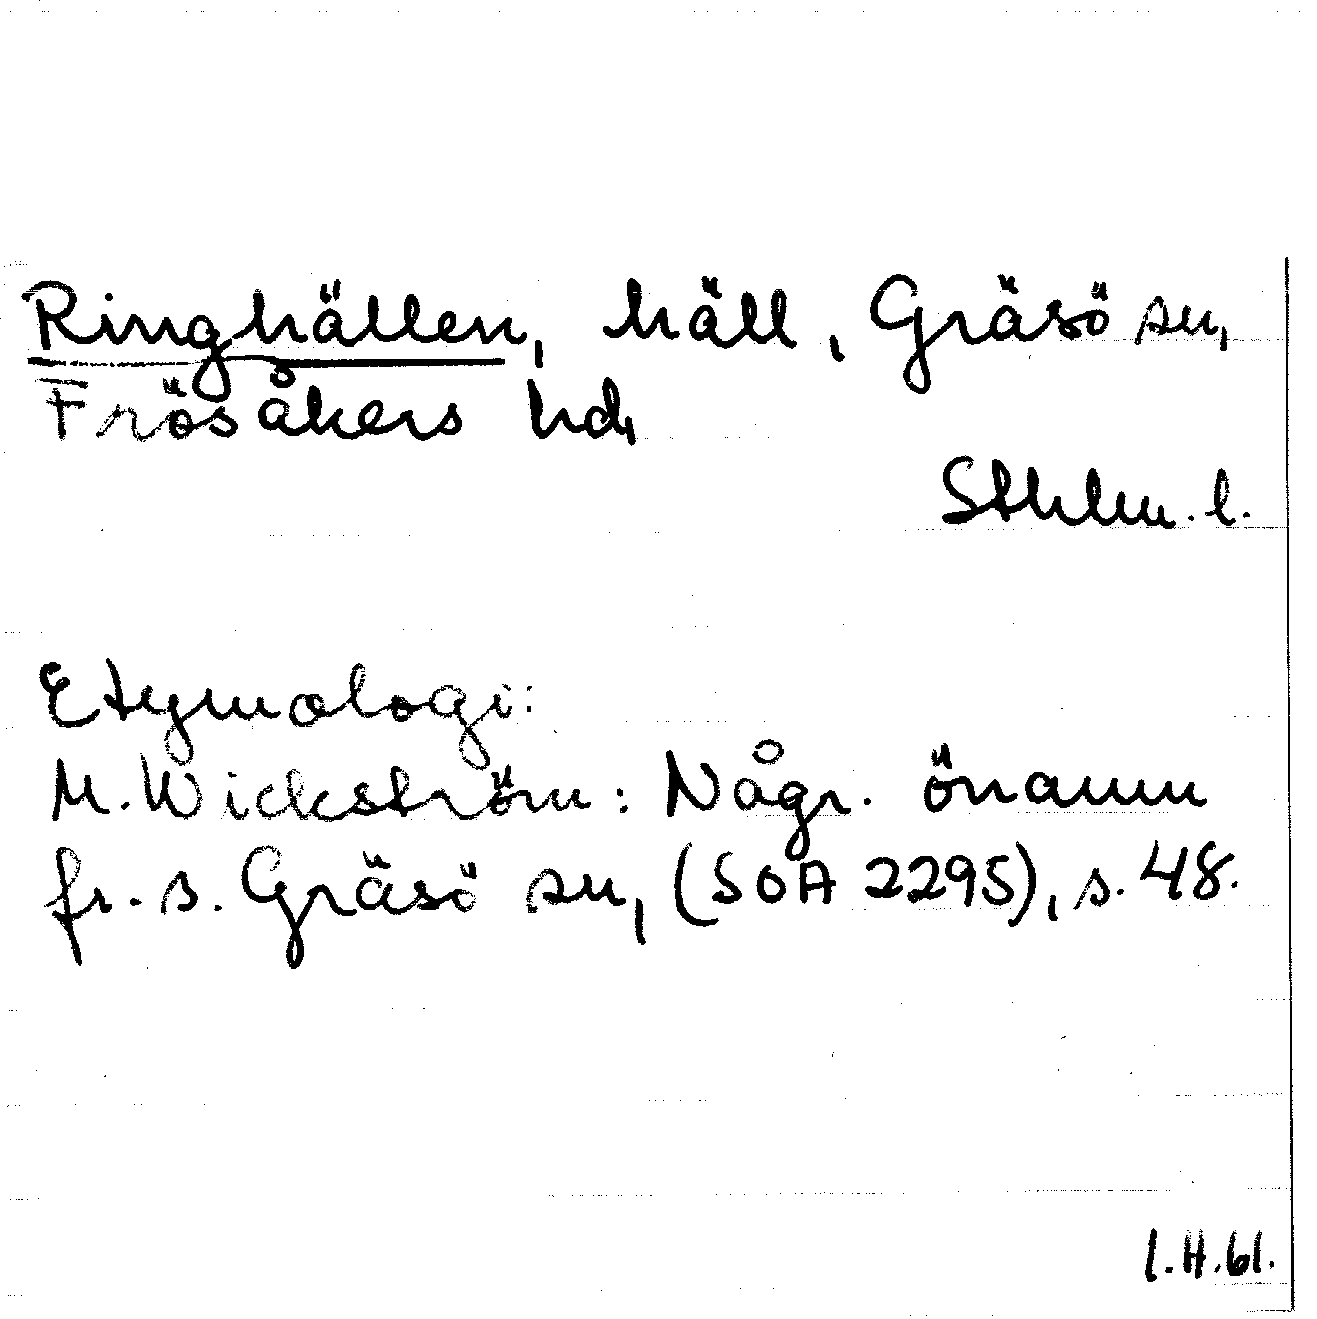 Ringhällen, häll, Gräsö sn,
Frösåkers hd,
Sthlm. l.
Etymologi:
M. Wickström: Någr. önamn
fr. s. Gräsö sn, (SOA 2295), s. 48.
I.H.61.